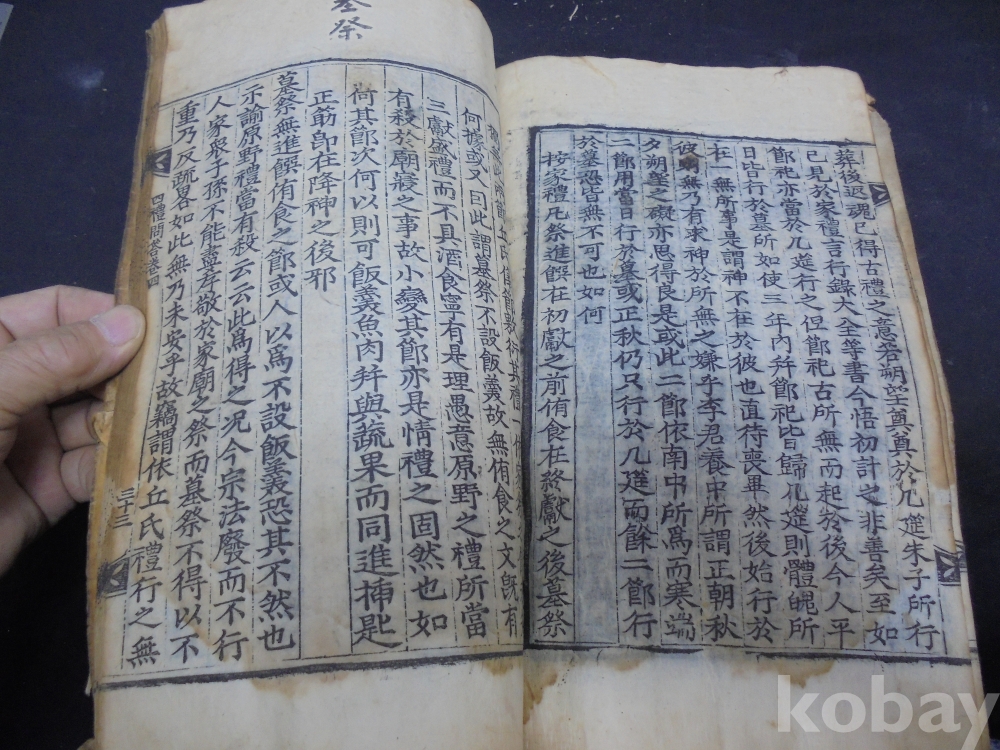 葬後返魂已得古禮之意若朔望奠奠於几筵朱子所行
已見於家禮言行錄大全等書今悟初計之非善矣至如
節祀亦當於几筵行之但節祀古所無而起於後今人平
日皆行於墓所如使三年內幷節祀皆歸几筵則體魄所
在無所事是謂神不在於彼也直待喪畢然後始行於
彼無乃有求神於所無之嫌乎李君養中所謂正朝秋
夕朔望之礙亦思得良是或此二節依南中所爲而寒端
二節用當日行於墓或正秋仍只行於几筵而餘二節行
於墓恐皆無不可也如何
按家禮凡祭進饌在初獻之前侑食在終獻之後墓祭
何據或又曰此謂墓祭不設飯羹故無侑食之文旣有
三獻盛禮而不具酒食寧有是理愚意原野之禮所當
有殺於廟寢之事故小變其節亦是情禮之固然也如
何其節次何以則可飯羹魚肉幷與蔬果而同進揷匙
正筯卽在降神之後邪
墓祭無進饌侑食之節或人以爲不設飯羹恐其不然也
示諭原野禮當有殺云云此爲得之况今宗法廢而不行
人家衆子孫不能專存敬於家廟之祭而墓祭不得以不
重乃反疏畧如此無乃未安乎故竊謂依丘氏禮行之無
四禮問答卷四
三十三
墓祭
kobay